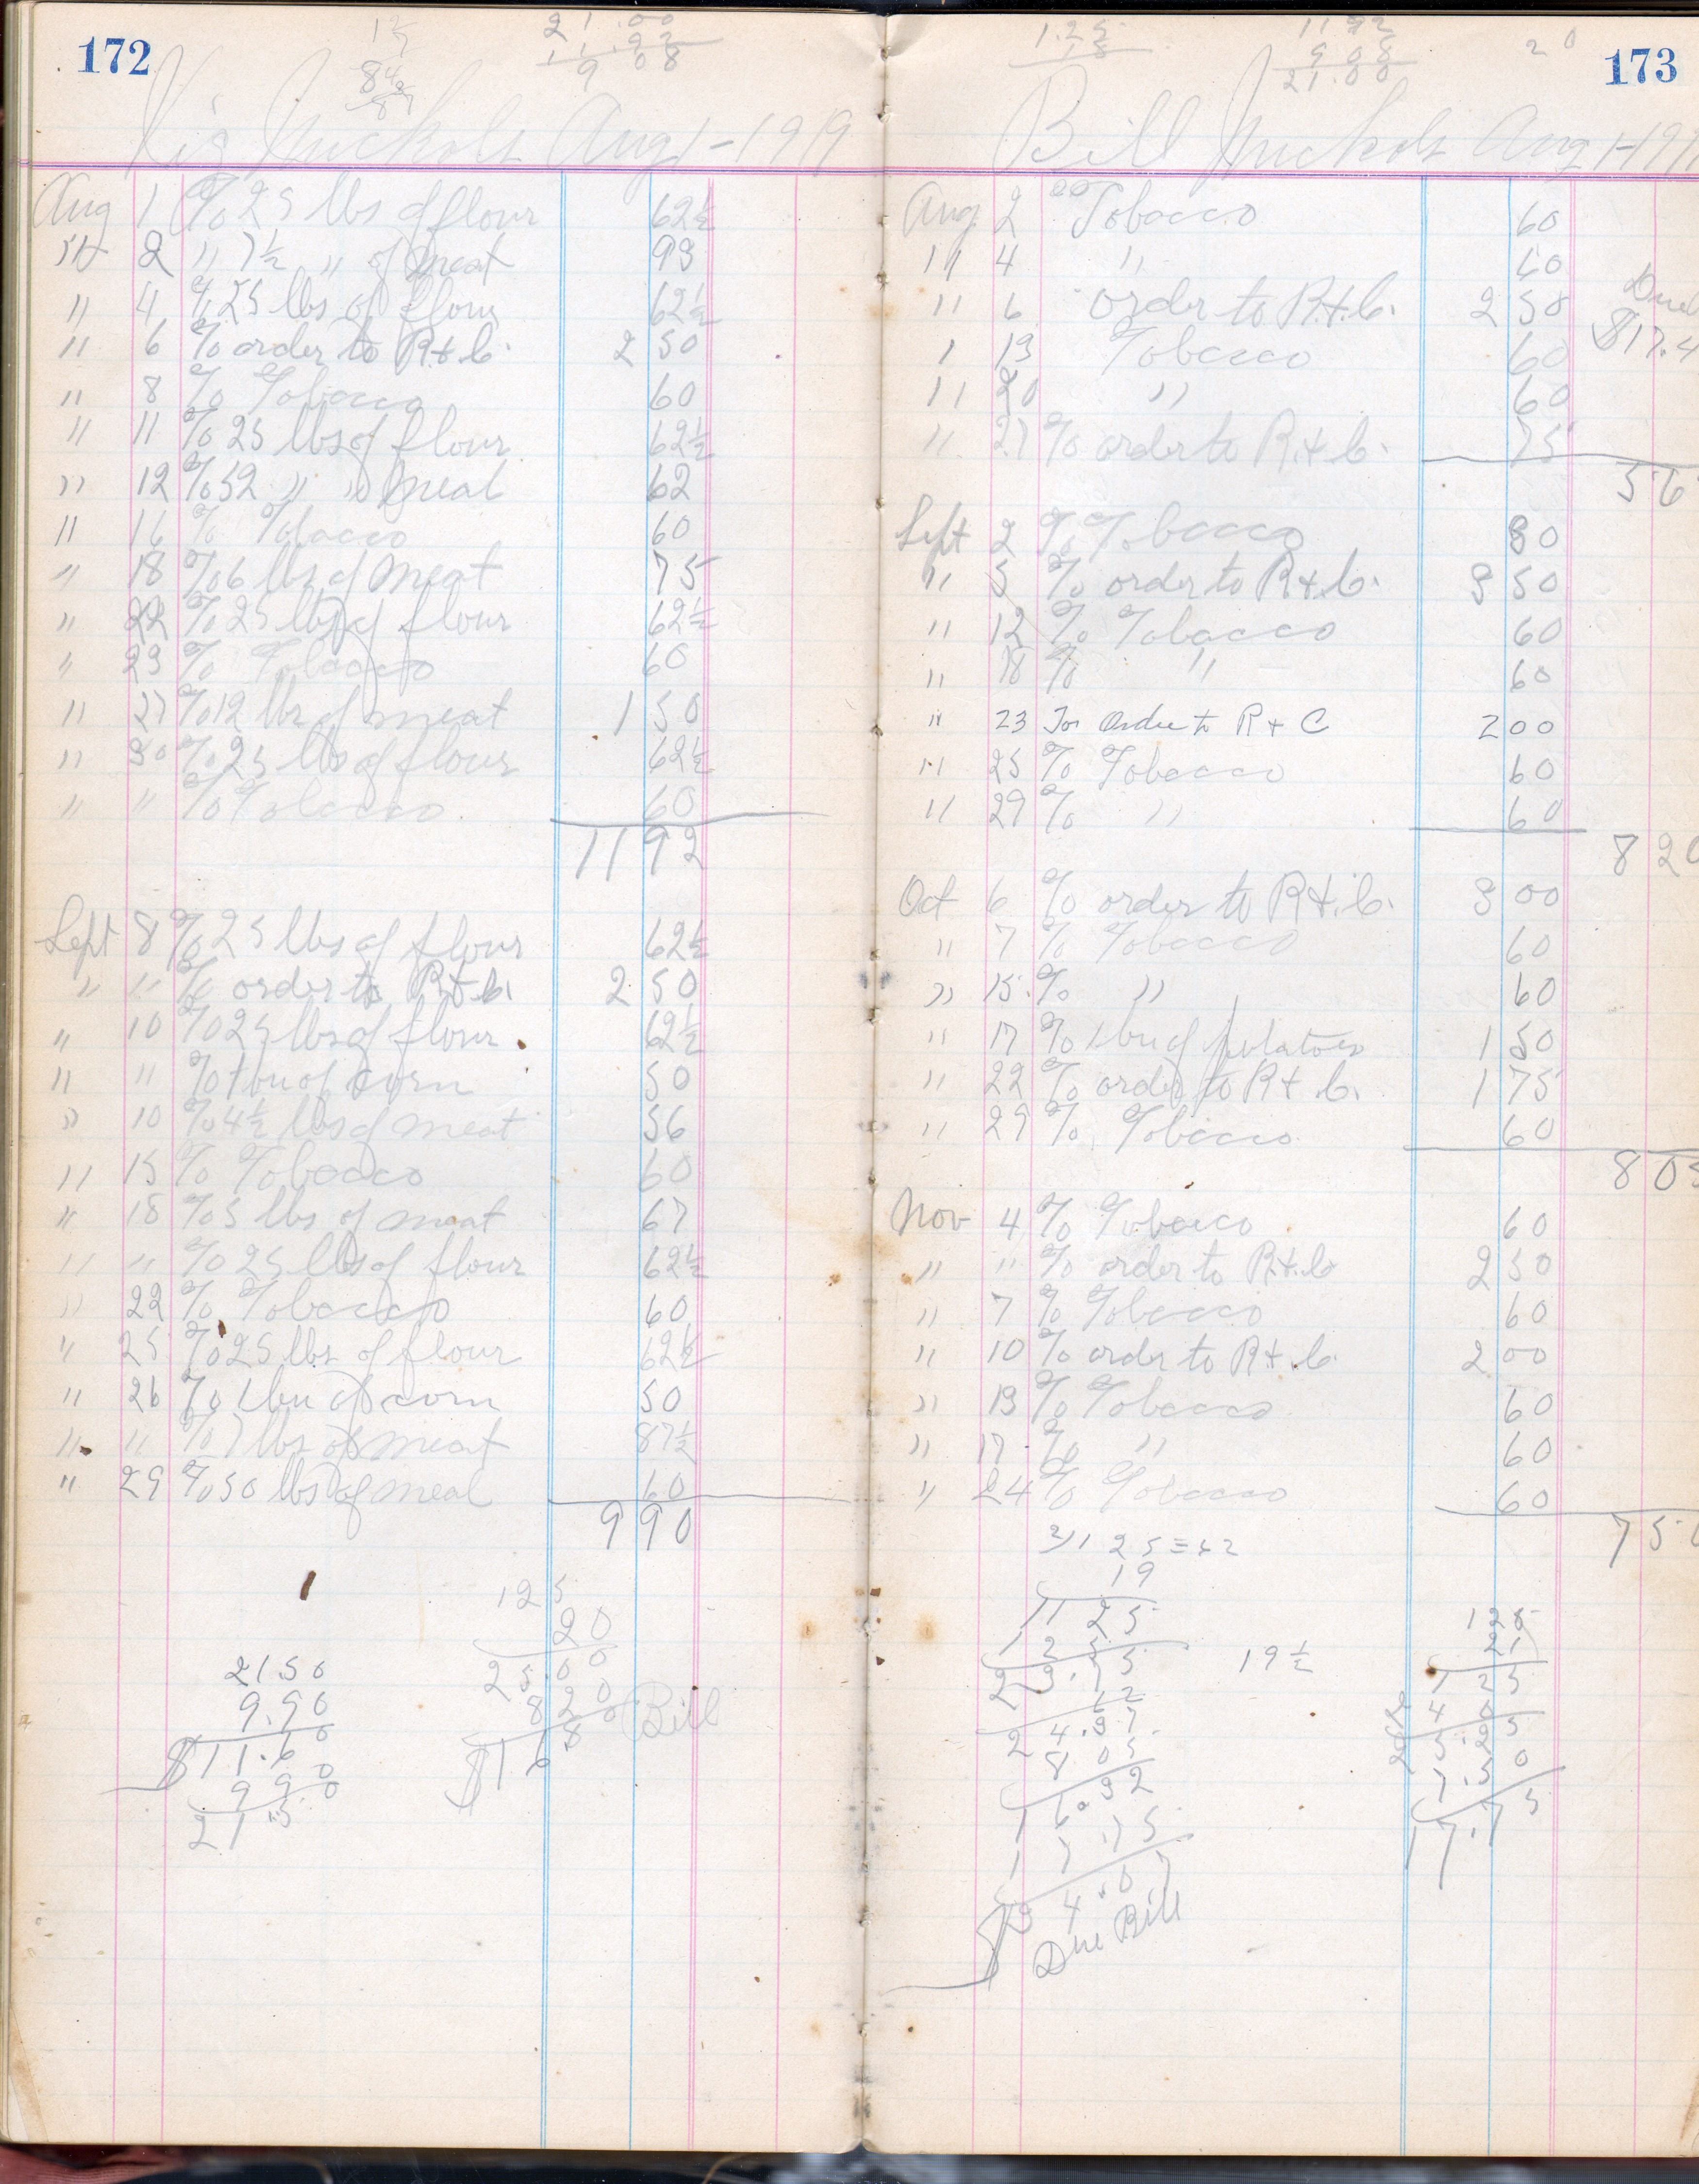 172
21.00
11.92
9 08
Nickols Aug 1-1919
Aug 1 % 25 lbs of flour 62½
" 2 " 7½ " of Meat 93
" 4 % 25 lbs of flour 62½
" 6 % order to R.+.C. 2 50
" 8 % Tobacco 60
" 11 % 25 lbs of flour 62½
" 12 % 52 " " Meal 62
" 16 % Tobacco 60
" 18 % 6 lbs of Meat 75
" 22 % 25 lbs of flour 62½
" 23 % Tobacco 60
" 27 % 12 lbs of meat 1 50
" 30 % 25 lbs of flour 62½
" " % Tobacco 60
11 92
Sept 8 % 25 lbs of flour 62½
" " % order to R.+.C. 2 50
" 10 % 25 lbs of flour 62½
" " % 1 bu of corn 50
" 10 % 4½ lbs of meat 56
" 15 % Tobacco 60
" 18 % 5 lbs of meat 67
" " % 25 lbs of flour 62½
" 22 % Tobacco 60
" 25 % 25 lbs of flour 62½
" 26 % 1 bu of corn 50
" " % 7 lbs of meat 87½
" 29 % 50 lbs of meal 60
9 90
21.50
9.90
$11.60
9 90
21.50
125
20
25.00
8 20
$16.80 Bill
173
1.25
11 92
9 08
21.00
20
Bill Nickols Aug 1-191
Aug 2 Tobacco 60
" 4 " 60
" 6 order to R.+.C. 2 50
Due
$17.4
" 13 Tobacco 60
" 20 " 60
" 27 % order to R.+.C. 75
5 6
Sept 2 % Tobacco 80
" 5 % order to R.+.C. 3 50
" 12 % Tobacco 60
" 18 % " 60
" 23 To Order to R + C 2 00
" 25 % Tobacco 60
" 29 % " 60
8 20
Oct 6 % order to R.+.C. 3 00
" 7 % Tobacco 60
" 15 % " 60
" 17 % 1 bu of potatoes 1 50
" 22 % order to R.+.C. 1 75
" 29 % Tobacco 60
8 05
Nov 4 % Tobacco 60
" " % order to R.+.C. 2 50
" 7 % Tobacco 60
" 10 % order to R.+.C. 2 00
" 13 % Tobacco 60
" 17 % " 60
" 24 % Tobacco 60
7 50
2)1 25=62
19
11 25
12 5
23.75
62
24.37
8.05
16.32
17.75
$34.07
Due Bill
19½
125
21
1 25
25 0
26.25
7.50
17.75